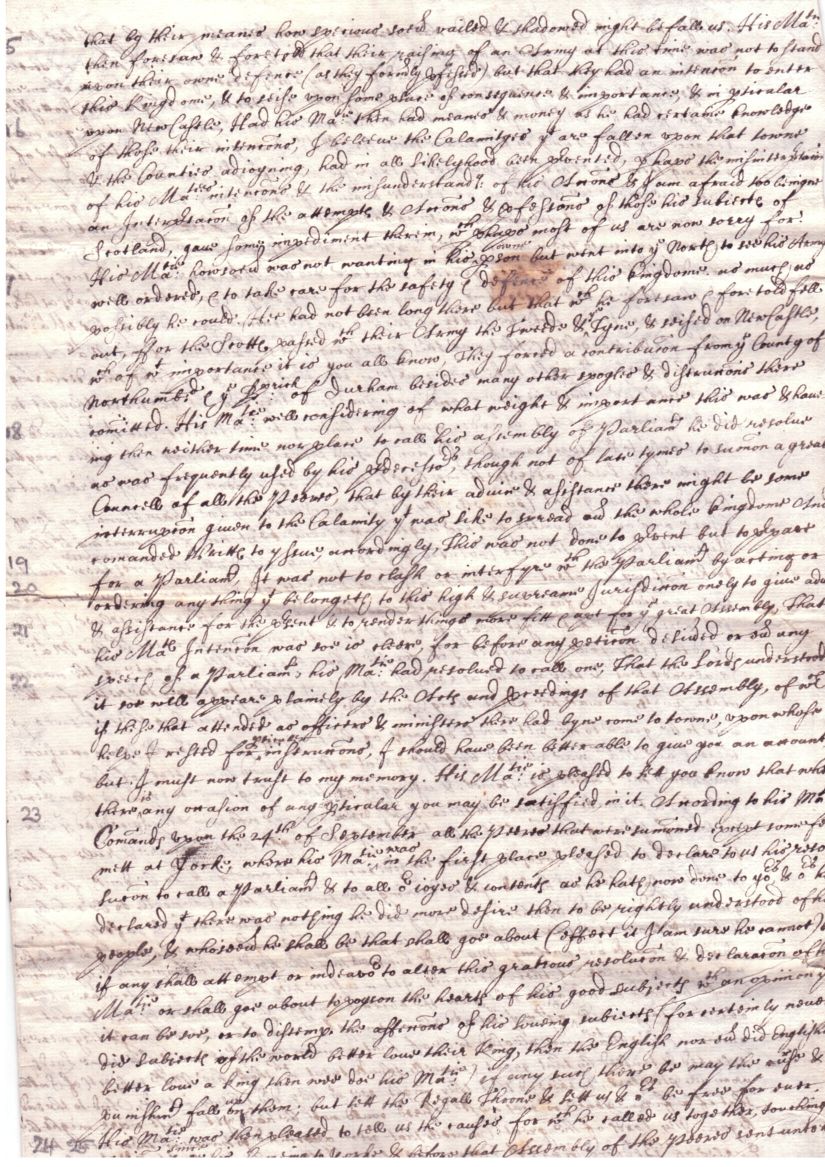 that by their meanes how specious soev̄ vailed & shadowed might befall us. His Matie
5 then foresaw & foretold that their raising of an Army at this time was not to stand
upon their owne defence (as they formly p̱fessed) but that they had an intencōn to enter
this Kingdome, & to seise upon some place of consequence & importance, & in p̱ticular
16 upon NewCastle, Had his Matie then had meanes & money as he had certaine knowledge
of those their intencōns, I beleeve the Calamityes yt are fallen upon that towne
& the Counties adioyning, had in all likelyhood been p̱vented, p̱haps the misinterp̱tacōn
of his Maties intencōns & the misunderstandg of his Accōns & I am afraid too benigne
an Interp̱tacōn of the attempts & Accōns & p̱fessions of those his subiects of
Scotland, gave some impediment therein, wch p̱haps most of us are now sorry for
His Matie howsoev̄ was not wanting in his owne p̱son but went into ye North to see his Army
7 well ordered, & to take care for the safety & defence of this kingdome as much as
possibly he could. Hee had not been long there but that wch he foresaw & foretold fell
out, ffor the Scotts passed wth their Army the Tweede & Tyne, & seised on NewCastle,
wch of wt importance it is you all know, They forced a contribucōn from ye County of
Northumbld & ye Bp̱rick of Durham besides many other spoyles & distruccōns there
18 comitted. His Matie well considering of what weight & importance this was & have
ing then neither time nor place to call his assembly of Parliamt he did resolve
as was frequently used by his p̱decessors, though not of late tymes to sumon a great
Councell of all the Peeres, that by their advice & assistance there might be some
interrupcōn given to the Calamity yt was like to spread ov̄ the whole kingdome And
19 comanded Writts to yssue accordingly, This was not done to p̱vent but to p̱pare
20 for a Parliamt, It was not to clash or interfyre wth the Parliamt by acting or
ordering any thing yt belongeth to this high & supreame Jurisdiccōn onely to give
21 & assistance for the p̱sent & to render things more fitt & apt for ys great Assembly, That
his Maties Intencōn was soe is cleere for before any peticōn delivd or ev̄ any
speech of a Parliamt, his Matie had resolved to call one, That the Lords understood
22 it soe will appeare plainely by the Acts and p̱ceedings of that Assembly, of wch
if these that attended as officers & ministers there had byne come to towne, upon whose
helpe I rested for p̱ticuler instruccōns, I should have been better able to give you an account
but I must now trust to my memory. His Matie is pleased to lett you know that when
there is any occasion of any p̱ticular you may be satisfied in it. According to his Maties
23 Comands upon the 24th of September all the Peeres that were sumoned except some few
mett at Yorke, where his Matie was in the first place pleased to declare to us his reso
lucōn to call a Parliamt & to all or ioyes & contents as he hath now done to yors & ors
declared yt there was nothing he did more desire then to be rightly understood of his
people, & whosoev̄ he shall be that shall goe about (effect it I am sure he cannot)
if any shall attempt or indeavor to alter this gratious resolucōn & declaracōn of his
Matie or shall goe about to poyson the hearts of his good subjects wth an opinion yt
it can be soe, or to distemp̱ the affeccōns of his loving subiects (for certeinly never
did subiects of the world better love their King, then the English nor ev̄ did English
better love a King then wee doe his Matie) if any such there be may the curse &
punishmt fall on them; but lett the Regall Throne & lett us & ors be free for ever.
His Matie was then pleased to tell us the causes for wch he called us together, touching
24 25 to Yorke & before that Assembly of the Peeres sent unto